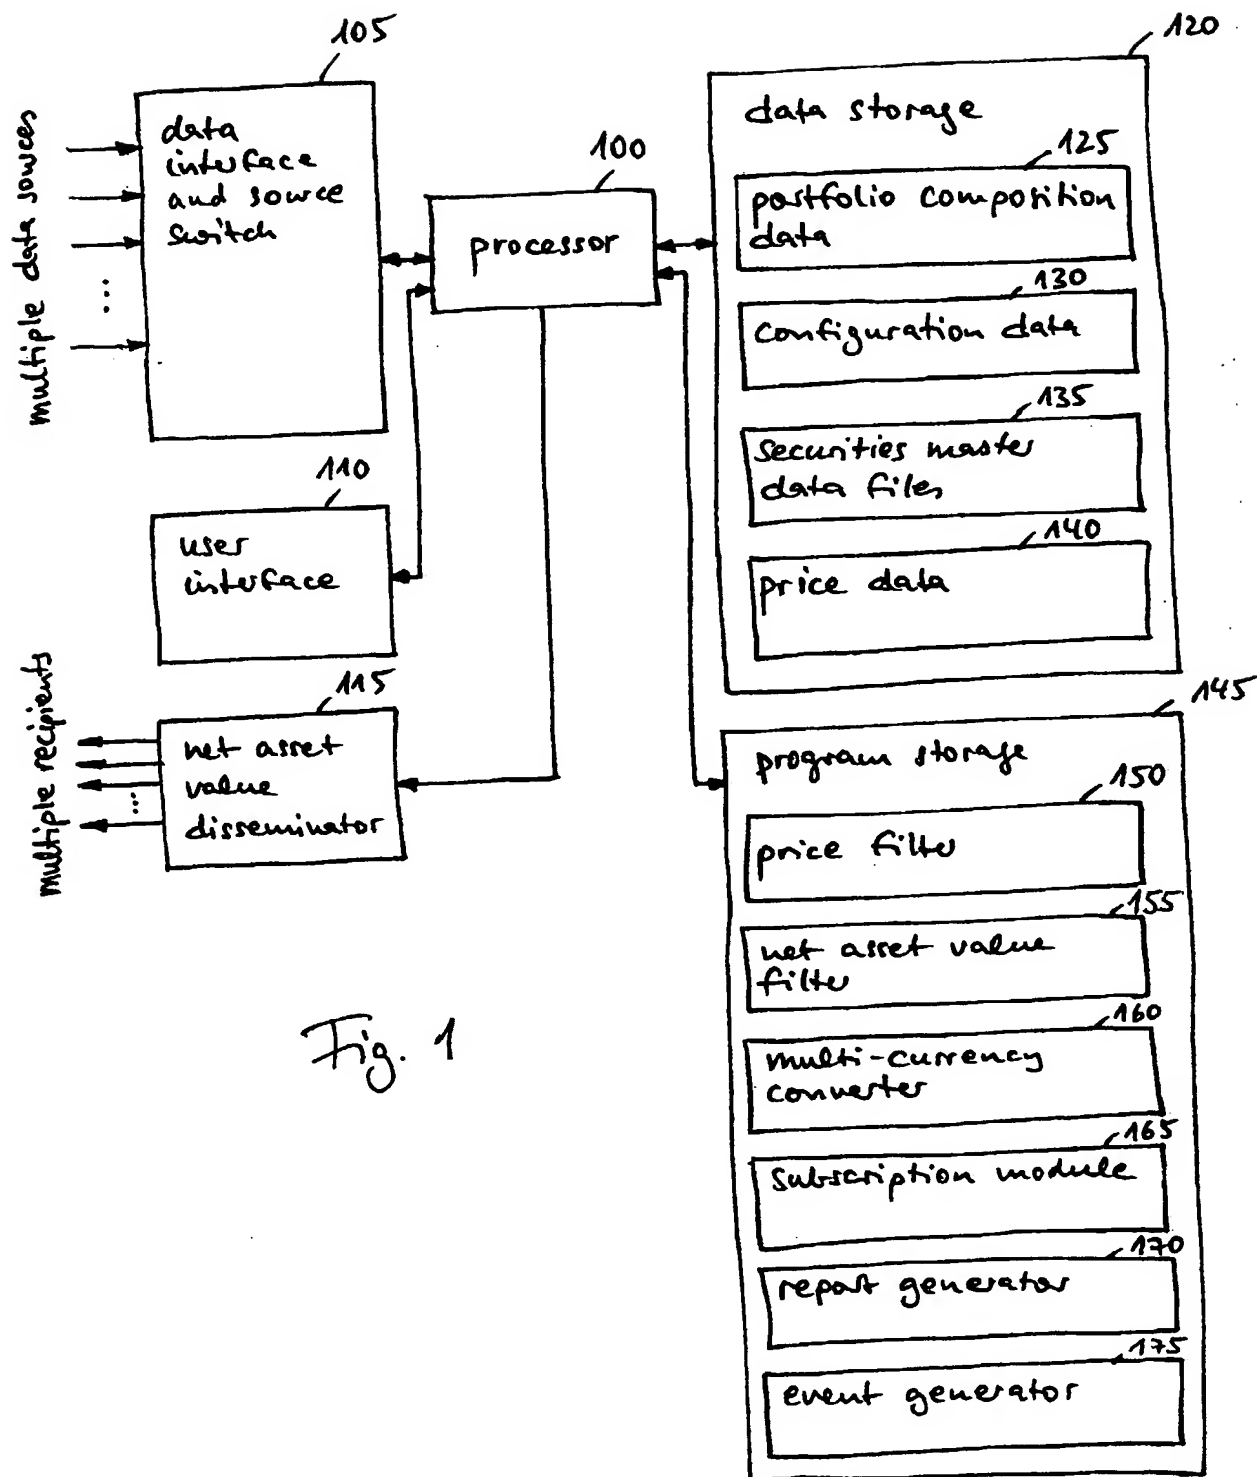 105
data
interface
and source
switch
multiple data sources
...
100
processor
110
user
interface
115
net asset
value
disseminator
multiple recipients
...
120
data storage
125
portfolio composition
data
130
configuration data
135
securities master
data files
140
price data
145
program storage
150
price filter
155
net asset value
filter
160
multi-currency
converter
165
subscription module
170
report generator
175
event generator
Fig. 1